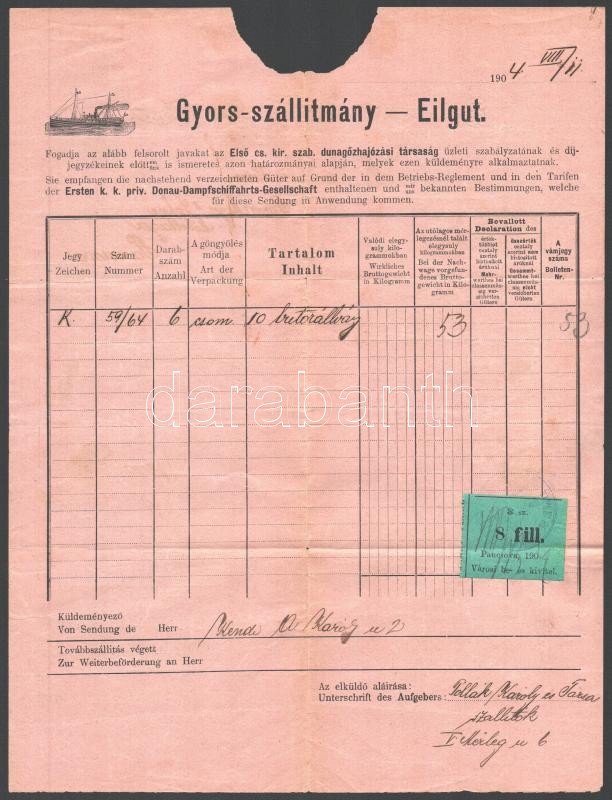 1904 VIII/11
Gyors-szállitmány — Eilgut.
Fogadja az alább felsorolt javakat az Első cs. kir. szab. dunagőzhajózási társaság üzleti szabályzatának és díj-
jegyzékeinek előttem/ünk is ismeretes azon határozmányai alapján, melyek ezen küldeményre alkalmaztatnak.
Sie empfangen die nachstehend verzeichneten Güter auf Grund der in dem Betriebs-Reglement und in den Tarifen
der Ersten k. k. priv. Donau-Dampfschiffahrts-Gesellschaft enthaltenen und mir/uns bekannten Bestimmungen, welche
für diese Sendung in Anwendung kommen.
Jegy
Zeichen
Szám
Nummer
Darab-
szám
Anzahl
A göngyölés
módja
Art der
Verpackung
Tartalom
Inhalt
Valódi elegy-
suly kilo-
grammokban
Wirkliches
Bruttogewicht
in Kilogramm
Az utólagos mér-
legezésnél talált
elegysuly
kilogrammokban
Bei der Nach-
wage vorgefun-
denes Brutto-
gewicht in Kilo-
gramm
Bevallott
Declaration des
A
vámjegy
száma
Bolleten-
Nr.
K. 59/64 6 csom. 10 53 53
darabanth
sz.
8 fill.
Pancsova, 190
Városi be- és kivitel.
Küldeményező
Von Sendung de Herr Kende A. Károly u 2
Továbbszállítás végett
Zur Weiterbeförderung an Herr
Az elküldő aláirása:
Unterschrift des Aufgebers: Pollák Károly és Társa
szállítók
V Mérleg u 6